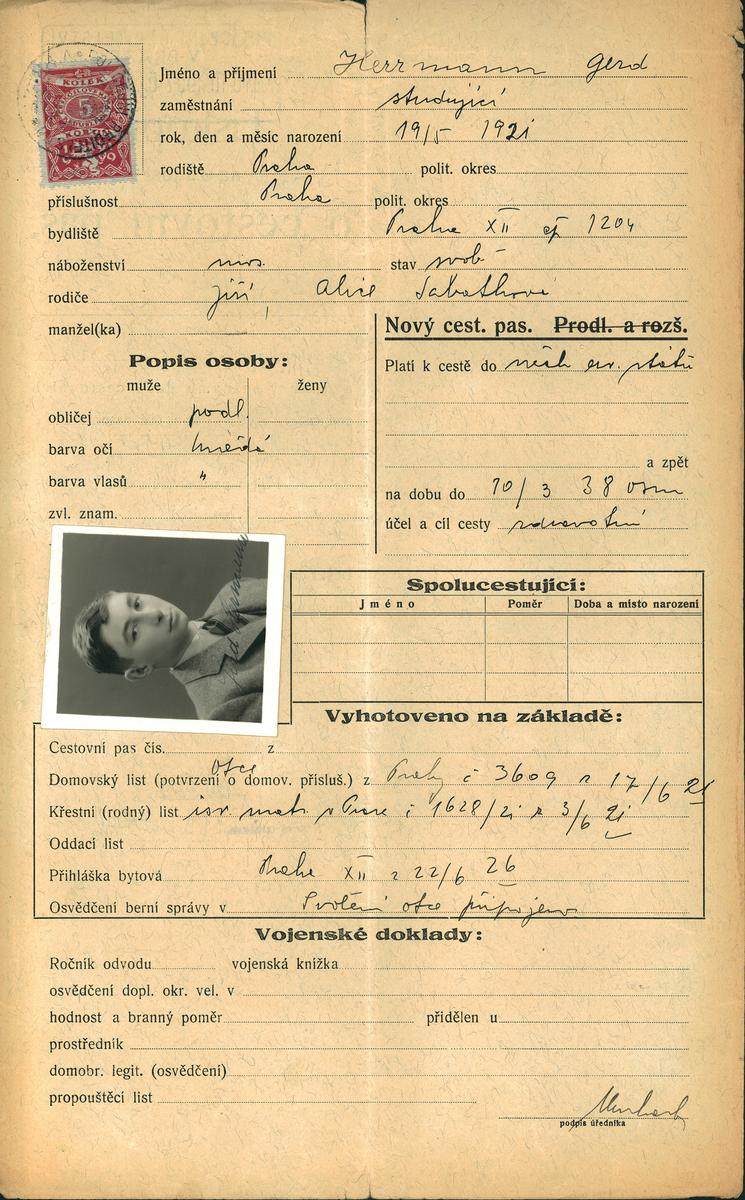 KOLEK
5
Jméno a příjmení Herrmann Gerd
zaměstnání studující
rok, den a měsíc narození 19/5 1921
rodiště Praha polit. okres
příslušnost Praha polit. okres
bydliště Praha XII čp 1204
náboženství stav svob
rodiče Jiří, Alice
manžel(ka)
Nový cest. pas. Prodl. a rozš.
Popis osoby:
muže ženy
Platí k cestě do států
obličej podl.
barva očí hnědé
barva vlasů "
zvl. znam.
a zpět
na dobu do 10/3 38 osm
účel a cíl cesty zdravotní
Spolucestující:
Jméno Poměr Doba a místo narození
Vyhotoveno na základě:
Cestovní pas čís. z
otce
Domovský list (potvrzení o domov. přísluš.) z Prahy č 3609 z 17/6 21
Křestní (rodný) list isr. mat. v Praze č 1628/21 z 3/6 21
Oddací list
Přihláška bytová Praha XII z 22/6 26
Osvědčení berní správy v Svolení otce připojeno
Vojenské doklady:
Ročník odvodu vojenská knížka
osvědčení dopl. okr. vel. v
hodnost a branný poměr přidělen u
prostředník
domobr. legit. (osvědčení)
propouštěcí list
podpis úředníka